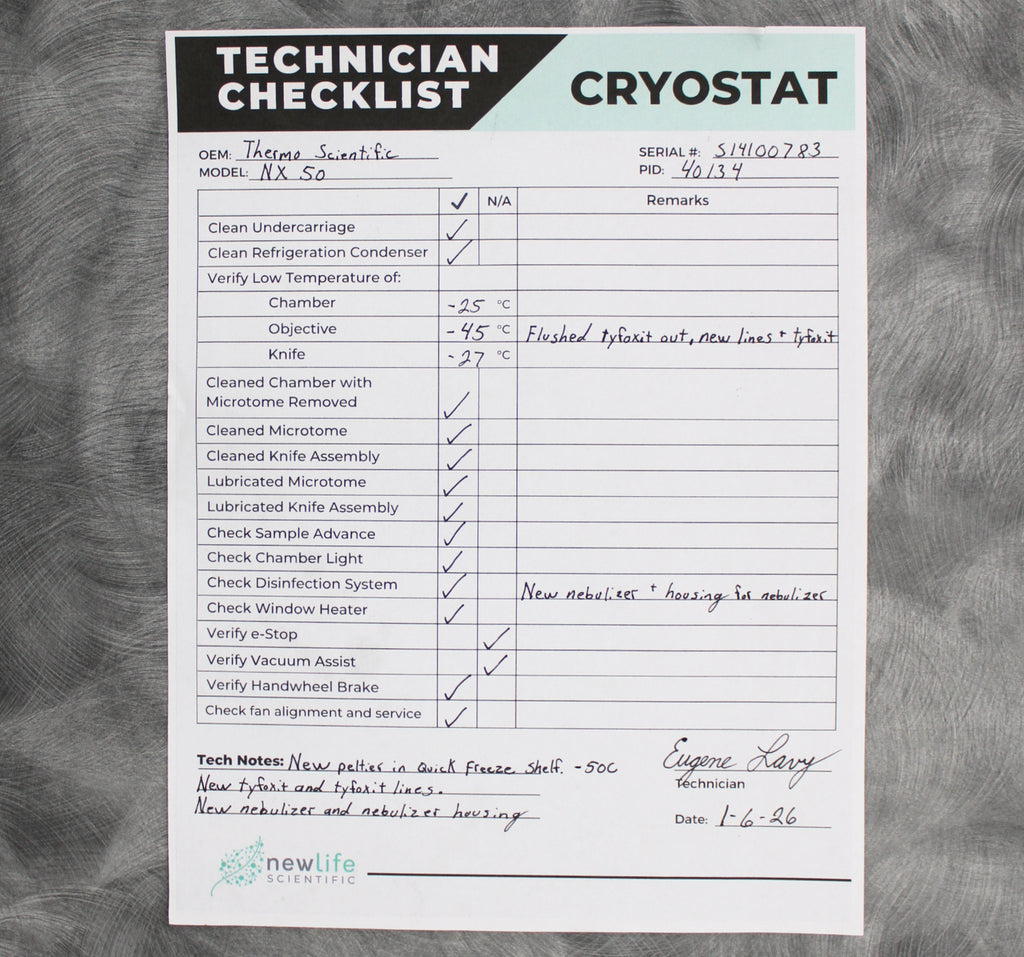 TECHNICIAN
CHECKLIST
CRYOSTAT
OEM: Thermo Scientific
MODEL: NX 50
SERIAL #: S14100783
PID: 40134
✓ N/A Remarks
Clean Undercarriage ✓
Clean Refrigeration Condenser ✓
Verify Low Temperature of:
Chamber -25 °C
Objective -45 °C Flushed tyfoxit out, new lines + tyfoxit
Knife -27 °C
Cleaned Chamber with
Microtome Removed ✓
Cleaned Microtome ✓
Cleaned Knife Assembly ✓
Lubricated Microtome ✓
Lubricated Knife Assembly ✓
Check Sample Advance ✓
Check Chamber Light ✓
Check Disinfection System ✓ New nebulizer + housing for nebulizer
Check Window Heater ✓
Verify e-Stop ✓
Verify Vacuum Assist ✓
Verify Handwheel Brake ✓
Check fan alignment and service ✓
Tech Notes: New peltier in Quick Freeze Shelf. -50C
New tyfoxit and tyfoxit lines.
New nebulizer and nebulizer housing
Eugene Lavy
Technician
Date: 1-6-26
newlife
SCIENTIFIC